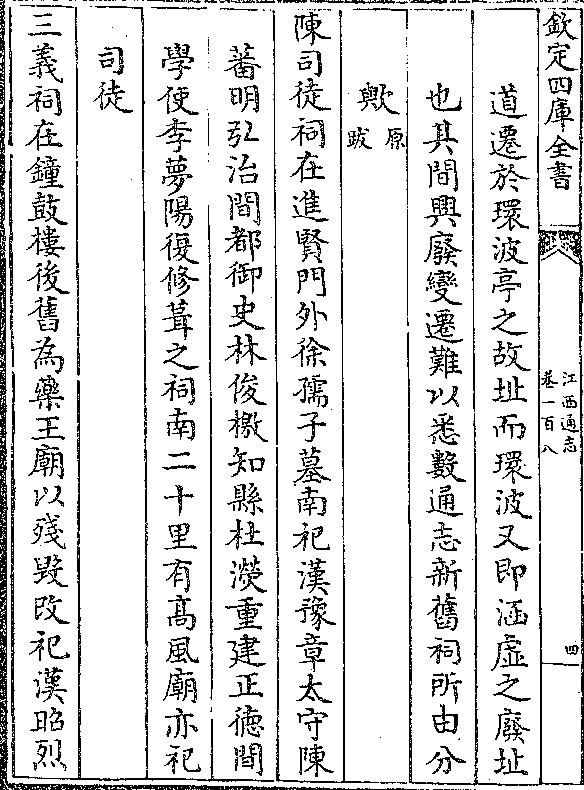 欽定四庫全書
江西通志
卷一百八
四
道遷於環波亭之故址而環波又即涵虛之廢址
也其間興廢變遷難以悉數通志新舊祠所由分
歟原跋
陳司徒祠在進賢門外徐孺子墓南祀漢豫章太守陳
蕃明弘治間都御史林俊檄知縣杜濙重建正德間
學使李夢陽復修葺之祠南二十里有髙風廟亦祀
司徒
三義祠在鐘鼓樓後舊為藥王廟以殘毀改祀漢昭烈